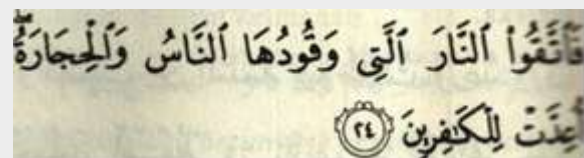 فَٱتَّقُوا۟ ٱلنَّارَ ٱلَّتِى وَقُودُهَا ٱلنَّاسُ وَٱلْحِجَارَةُ ۖ
أُعِدَّتْ لِلْكَـٰفِرِينَ ٢٤